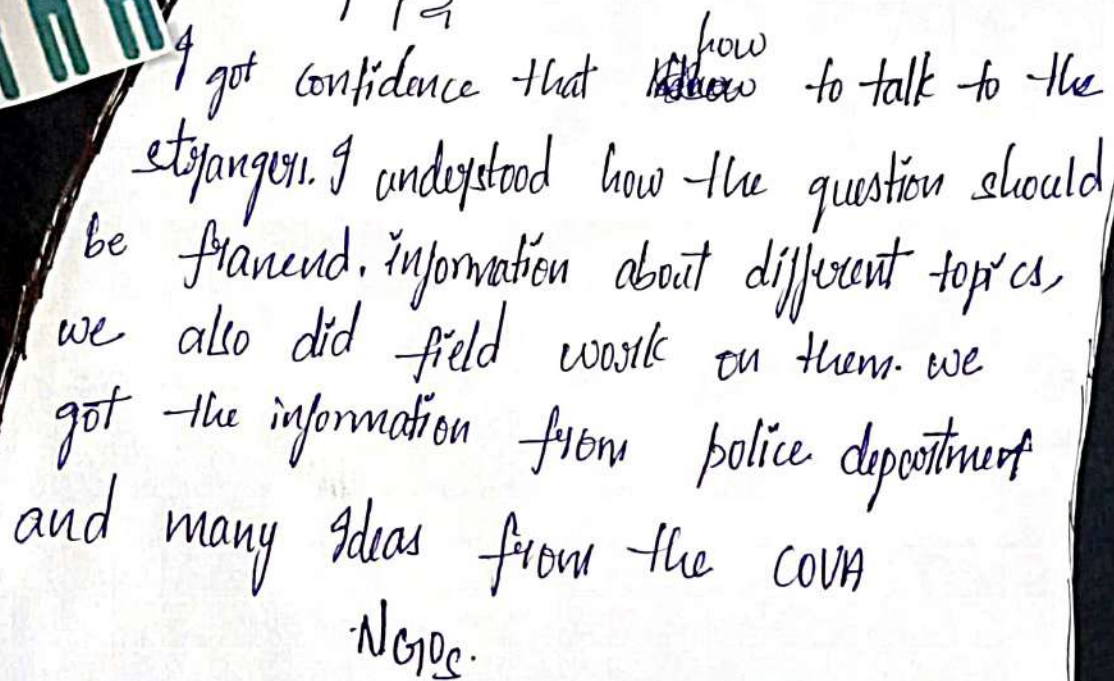 I got confidence that how to talk to the
strangers. I understood how the question should
be framend. information about different topics,
we also did field work on them. we
got the information from police department
and many Ideas from the COVA
NGOs.